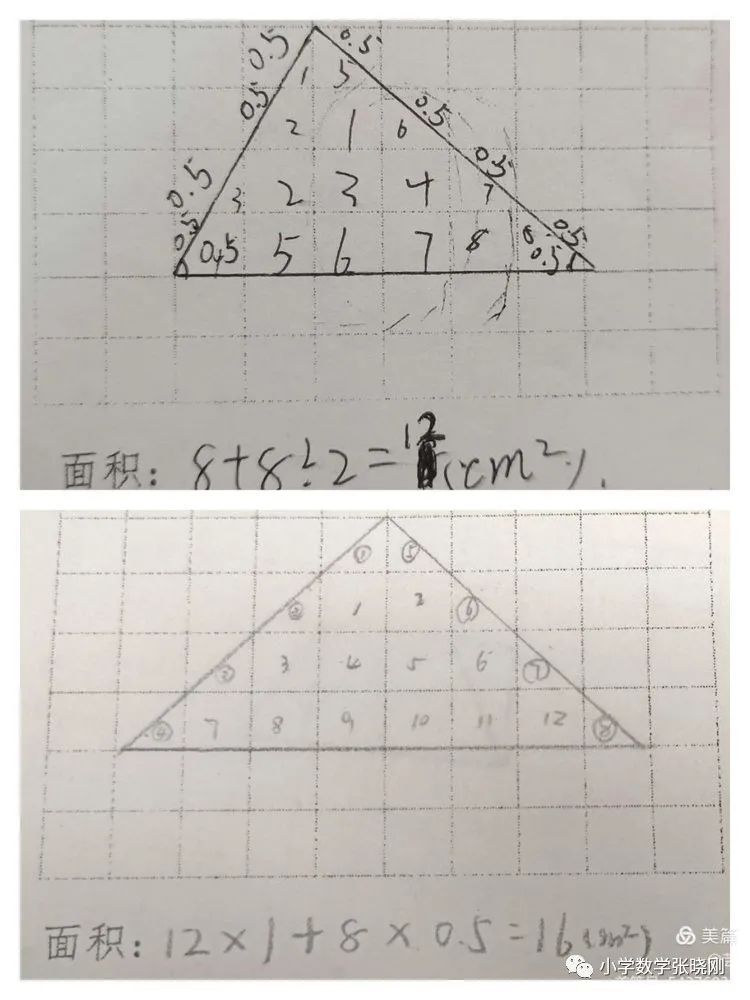 0.5 0.5
0.5 1 5
2 1 6 0.5
0.5 3 2 3 4 7 0.5
0.5 0.5 5 6 7 8 8 0.5 0.5
面积: 8+8÷2=12(cm²).
① ⑤
② 1 2 ⑥
③ 3 4 5 6 ⑦
④ 7 8 9 10 11 12 ⑧
面积: 12×1+8×0.5=16(cm²)
美篇
小学数学张晓刚